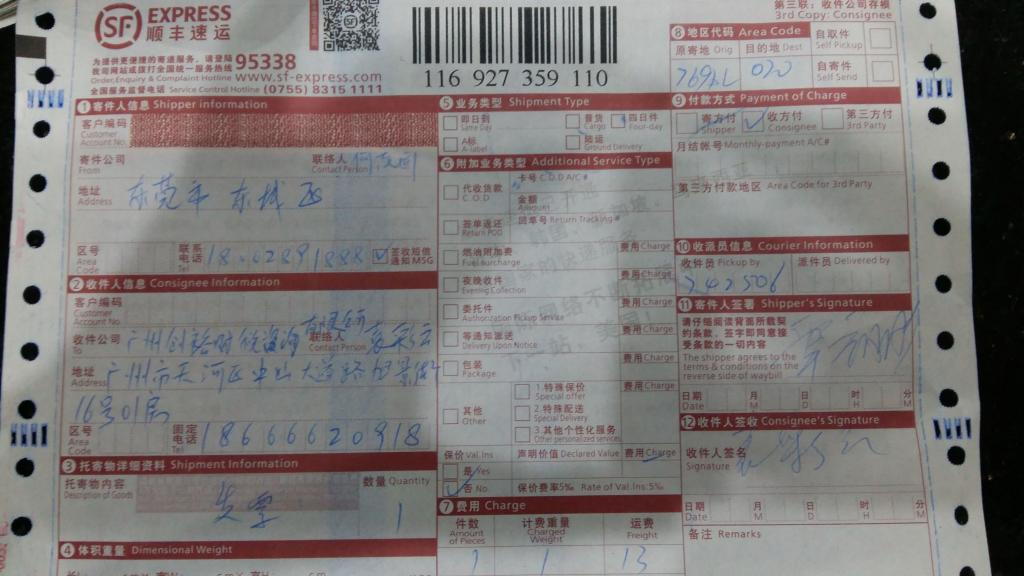 SF EXPRESS
顺丰速运
为提供更便捷的寄递服务，请登陆
我司网站或拨打全国统一服务热线 95338
Order,Enquiry & Complaint Hotline www.sf-express.com
全国服务监督电话 Service Control Hotline (0755) 8315 1111
116 927 359 110
第三联：收件公司存根
3rd Copy: Consignee
8 地区代码 Area Code
原寄地 Orig 目的地 Dest
020
自取件
Self Pickup
自寄件
Self Send
1 寄件人信息 Shipper information
客户编码
Customer
Account No.
寄件公司
From
联络人
Contact Person
地址
Address
东莞市 东城区
区号
Area
Code
联系
电话
Tel
签收短信
通知MSG
2 收件人信息 Consignee Information
客户编码
Customer
Account No.
有限公司
收件公司
To
广州创裕财税咨询
联络人
Contact Person
地址
Address
广州市天河区中山大道路
16号01房
区号
Area
Code
固定
电话
Tel
18666620918
3 托寄物详细资料 Shipment Information
托寄物内容
Description of Goods
数量 Quantity
1
4 体积重量 Dimensional Weight
5 业务类型 Shipment Type
即日到
Same Day
普货
Cargo
四日件
Four-day
A标
A-label
陆运
Ground Delivery
6 附加业务类型 Additional Service Type
代收货款
C.O.D
卡号 C.O.D A/C#
金额
Amount
签单返还
Return POD
回单号 Return Tracking#
燃油附加费
Fuel Surcharge
费用 Charge
夜晚收件
Evening Collection
费用 Charge
委托件
Authorization Pickup Service
费用 Charge
等通知派送
Delivery Upon Notice
包装
Package
费用 Charge
其他
Other
1.特殊保价
Special offer
费用 Charge
2.特殊配送
Special Delivery
3.其他个性化服务
Other personalized services
保价 Val.Ins
声明价值 Declared Value
费用 Charge
是 Yes
否 No
保价费率5‰ Rate of Val.Ins:5‰
7 费用 Charge
件数
Amount
of Pieces
计费重量
Charged
Weight
运费
Freight
1 1 13
9 付款方式 Payment of Charge
寄方付
Shipper
收方付
Consignee
第三方付
3rd Party
月结帐号 Monthly-payment A/C#
第三方付款地区 Area Code for 3rd Party
10 收派员信息 Courier Information
收件员 Pickup by
派件员 Delivered by
242506
11 寄件人签署 Shipper's Signature
请仔细阅读背面所载契
约条款，签字即同意接
受条款的一切内容
The shipper agrees to the
terms & conditions on the
reverse side of waybill
日期
Date
月
M
日
D
时
H
分
M
12 收件人签收 Consignee's Signature
收件人签名
Signature
日期
Date
月
M
日
D
时
H
分
M
备注 Remarks